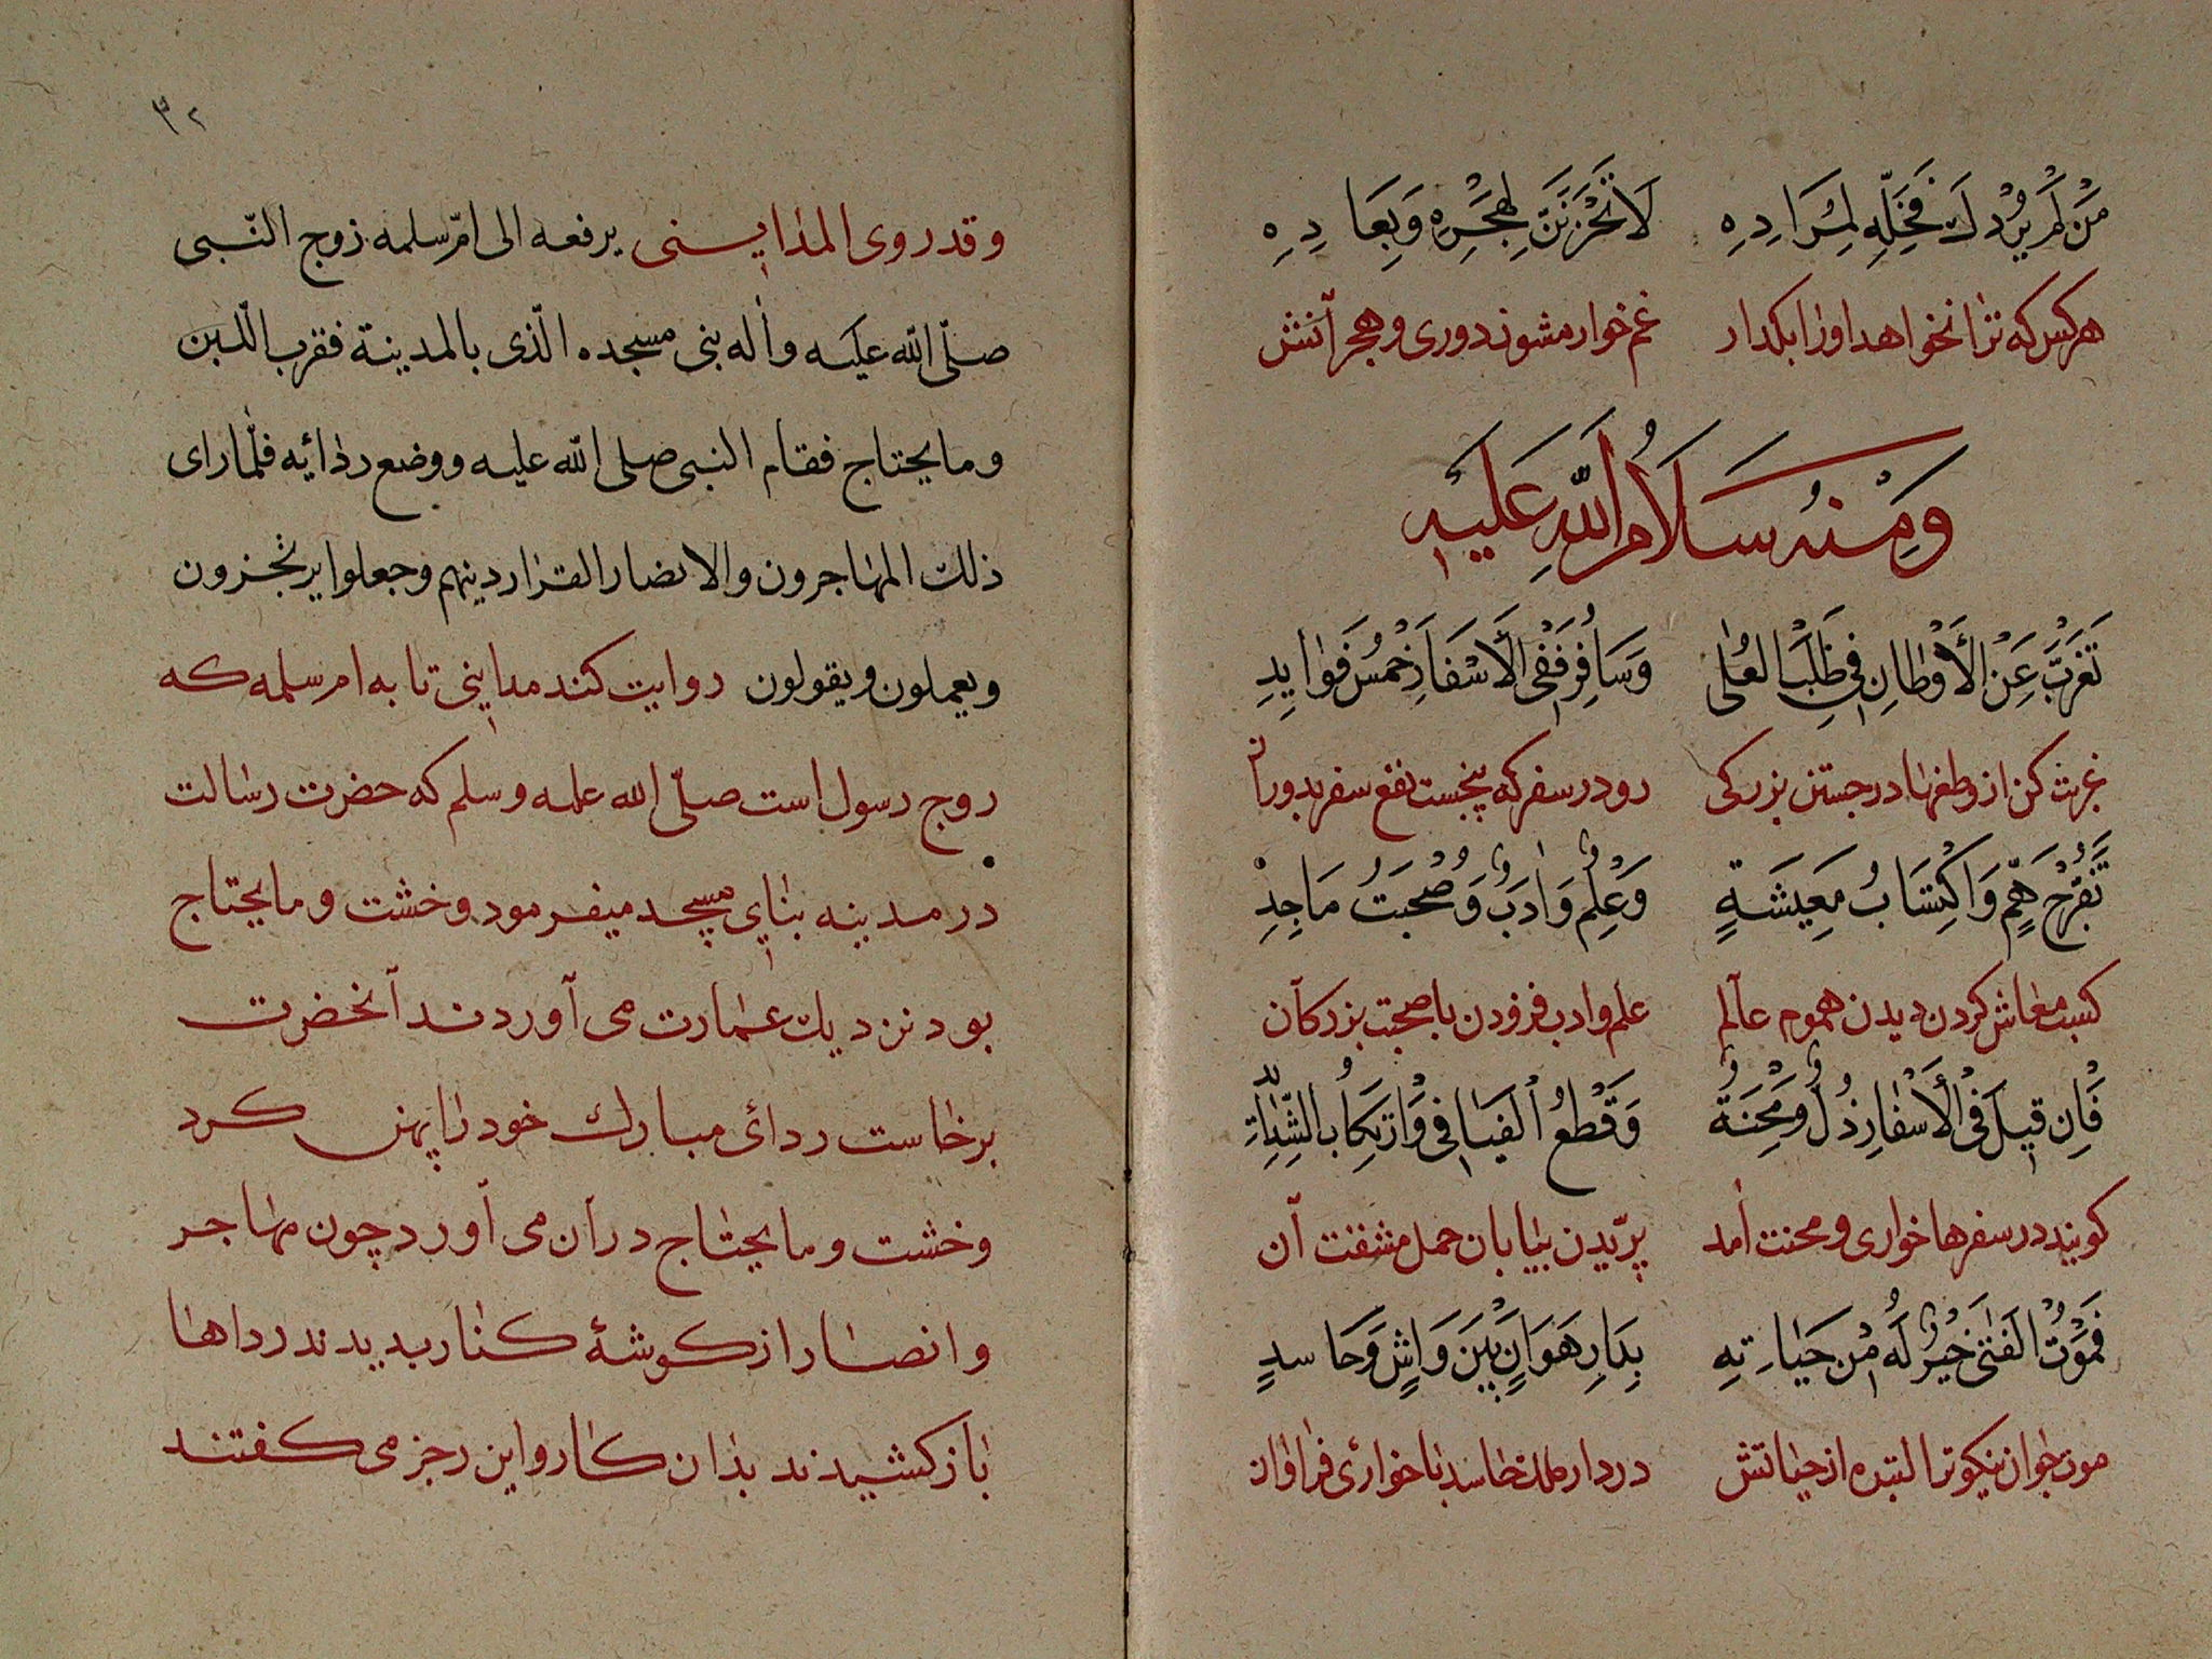 مَنْ لَمْ يُرِدْكَ فَخَلِّهِ لِمُرَادِهِ لَا تَحْزَنَنَّ لِهَجْرِهِ وَبِعَادِهِ
هر کس که ترا نخواهد او را بکذار غم خوار مشو ز دوری و هجر آنش
وَمِنْهُ سَلَامُ اللّٰهِ عَلَيْهِ
تَغَرَّبْ عَنْ الْأَوْطَانِ فِي طَلَبِ الْعُلٰى وَسَافِرْ فَفِي الْأَسْفَارِ خَمْسُ فَوَايِدِ
غربت کن از وطنها در جستن بزرکی رو در سفر که پنجست نفع سفر بدوران
تَفَرُّجُ هَمٍّ وَاكْتِسَابُ مَعِيشَةٍ وَعِلْمٌ وَادَبٌ وَصُحْبَتُ مَاجِدِ
کسب معاش کردن دیدن هموم عالم علم و ادب فزودن با صحبت بزرکان
فَاِن قِيلَ فِي الْأَسْفَارِ ذُلٌّ وَمِحْنَةٌ وَقَطْعُ الْفَيَافِي وَارْتِكَابُ الشَّدَائِدِ
کویند در سفرها خواری و محنت آمد برّیدن بیابان حمل مشقت آن
فَمَوْتُ الْفَتٰى خَيْرٌ لَهُ مِنْ حَيَاتِهِ بِدَارِ هَوَانٍ بَيْنَ وَاشٍ وَحَاسِدٍ
موت جوان نیکوتر البته از حیاتش در دار حاسد با خواری فراوان
۳۲
وقد روی المداینی یرفعه الی امّ سلمه زوج النّبی
صلّی اللّه علیه واله بنی مسجده الّذی بالمدینة فقرب اللّبن
وما یحتاج فقام النبی صلی اللّه علیه ووضع ردائه فلمّا رای
ذلك المهاجرون والانصار القوا رديتهم وجعلوا يرتجزون
ویعملون ویقولون روایت کنند مداینی تا به ام سلمه که
زوج رسول است صلّی الله علیه وسلم که حضرت رسالت
در مدینه بنای مسجد میفرمود وخشت وما یحتاج
بود نزدیك عمارت می آوردند آنحضرت
برخاست ردائ مبارك خود را پهن کرد
وخشت وما یحتاج در آن می آورد چون مهاجر
وانصار از کوشهٔ کنار بدیدند رداها
باز کشیدند بدان کار و این رجز می کفتند